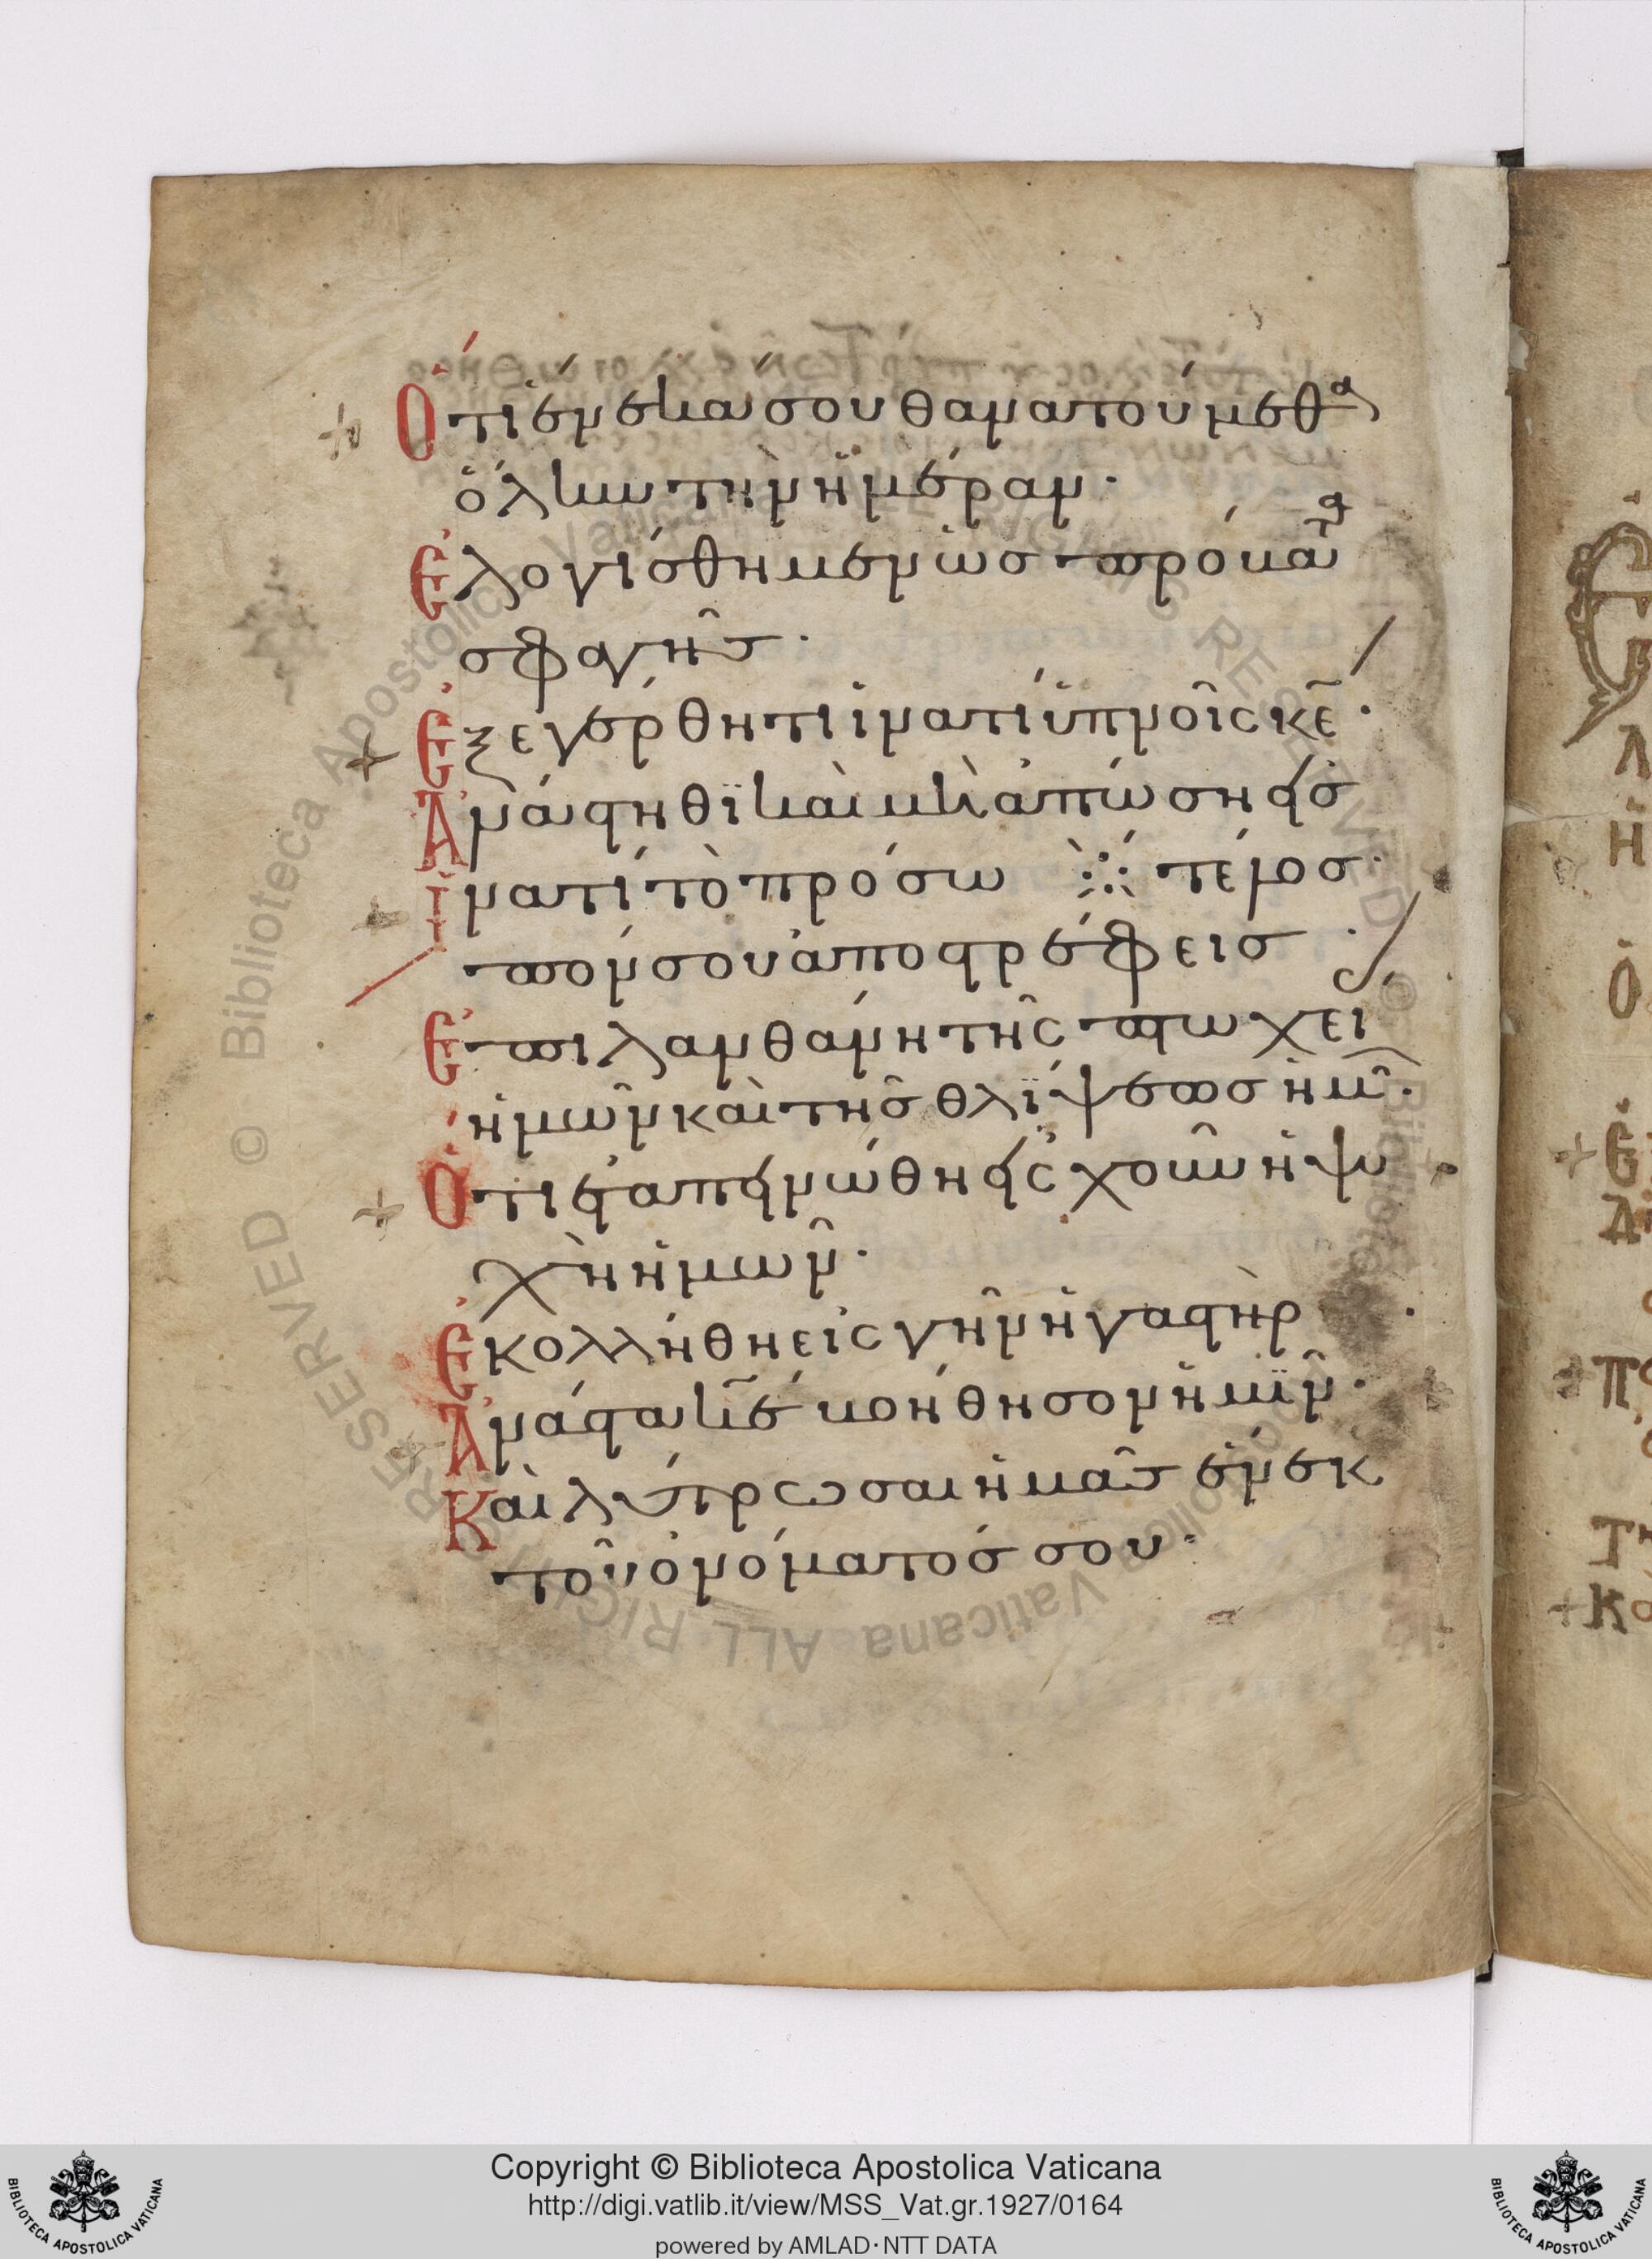 Ὅτι ἕνεκά σου θανατούμεθα
ὅλην τὴν ἡμέραν·
Ἐλογίσθημεν ὡς πρόβατα
σφαγῆς·
Ἐξεγέρθητι ἱνατί ὑπνοῖς κε·
Ἀνάστηθι καὶ μὴ ἀπώση εἰς
Ἱνατί τὸ πρόσω τέλος·
πον σου ἀποστρέφεις
Ἐπιλανθάνη τῆς πτωχεί
ἡμῶν καὶ τῆς θλίψεως ἡμ·
Ὅτι ἐταπεινώθη εἰς χοῦν ἡ ψυ
χὴ ἡμῶν·
Ἐκολλήθη εἰς γῆν ἡ γαστὴρ
Ἀνάστα κε βοήθησον ἡμῖν·
Καὶ λύτρωσαι ἡμᾶς ἕνεκ
τοῦ ὀνόματός σου·
Λ
Ἡ
Ὁ
Ἐ
Α
Π
Τ
Κ
Copyright © Biblioteca Apostolica Vaticana
http://digi.vatlib.it/view/MSS_Vat.gr.1927/0164
powered by AMLAD·NTT DATA
BIBLIOTECA APOSTOLICA VATICANA
BIBLIOTECA APOSTOLICA VATICANA